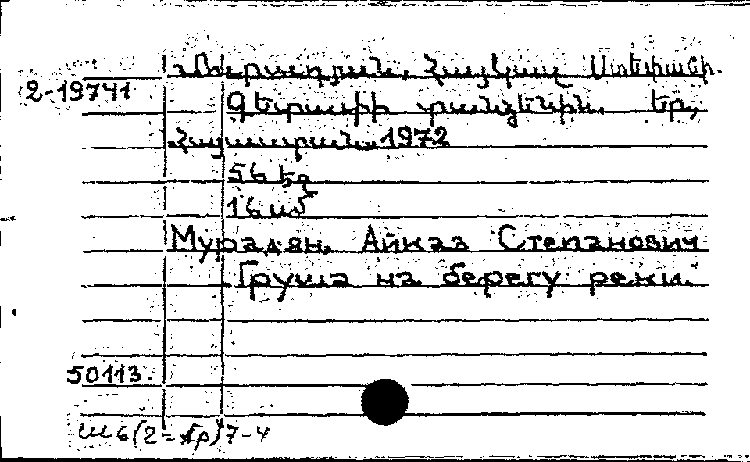 Մուրադյան, Հայկազ Ստեփանի.
2-19741
Գետափի տանձենին. Եր.,
Հայաստան, 1972
56 եջ
16 սմ
Мурадян, Айказ Степанович
Груша на берегу реки.
50113.
6(2=Ар)7-4